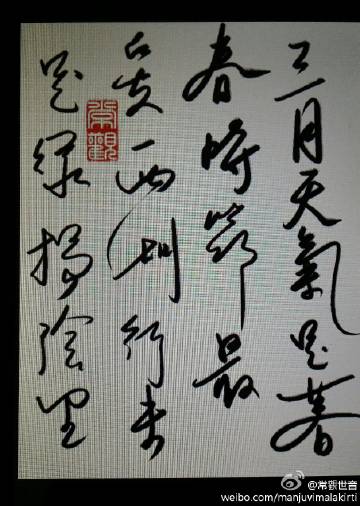 三月天氣是暮
春時節最
愛西湖行未
足綠楊陰里
常觀
@常觀世音
weibo.com/manjuvimalakirti